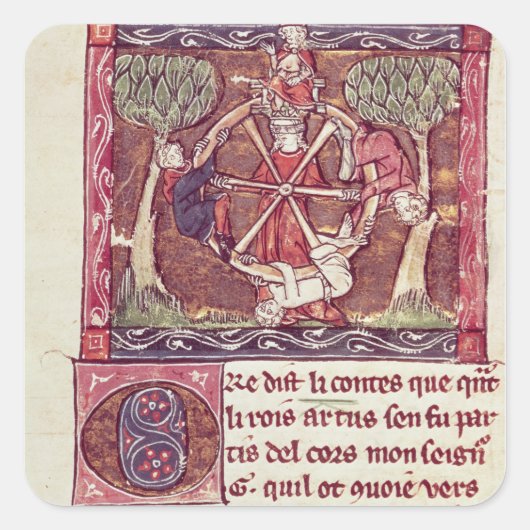 Ore dist li contes que qn̄t
li rois artus sen fu par
tis del cors mon seign̄
G. quil ot ɋuoie vers